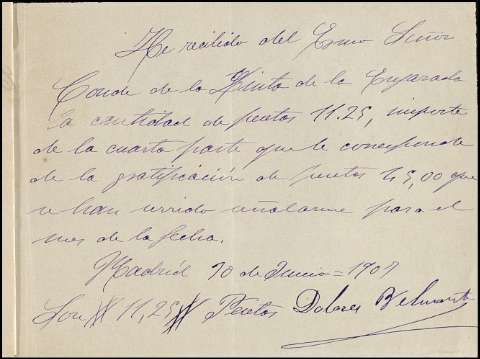 He recibido del Exmo Señor
Conde de la Quinta de la Enjarada
la cantidad de pesetas 11,25, importe
de la cuarta parte que le corresponde
de la gratificación de pesetas 45,00 que
se han servido señalarme para el
mes de la fecha.
Madrid 30 de Junio = 1907
Son # 11,25 # Pesetas Dolores Belmonte